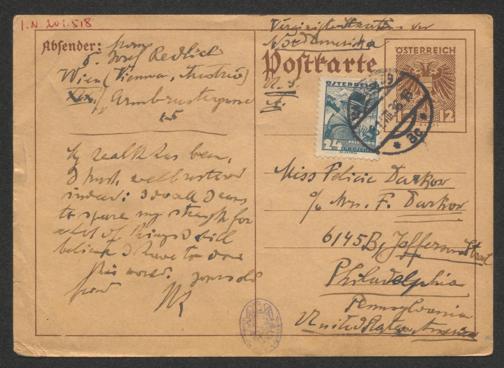 I.N. 201.518
Absender:
Josef Redlich
Wien (Vienna, Austria)
XIX, Armbrustergasse
15
My health has been,
I trust, well restored
indeed: I do all I can
to spare my strength for
a lot of things I still
believe I have to do in
this world. Yours old
friend
Vereinigte Staaten von
Nordamerika
Postkarte
U. S.
A.
ÖSTERREICH
12
ÖSTERREICH
24
Miss Felicie Darkow
c/o Mrs. F. Darkow
6145 Jefferson Street
Philadelphia
Pennsylvania
United States America